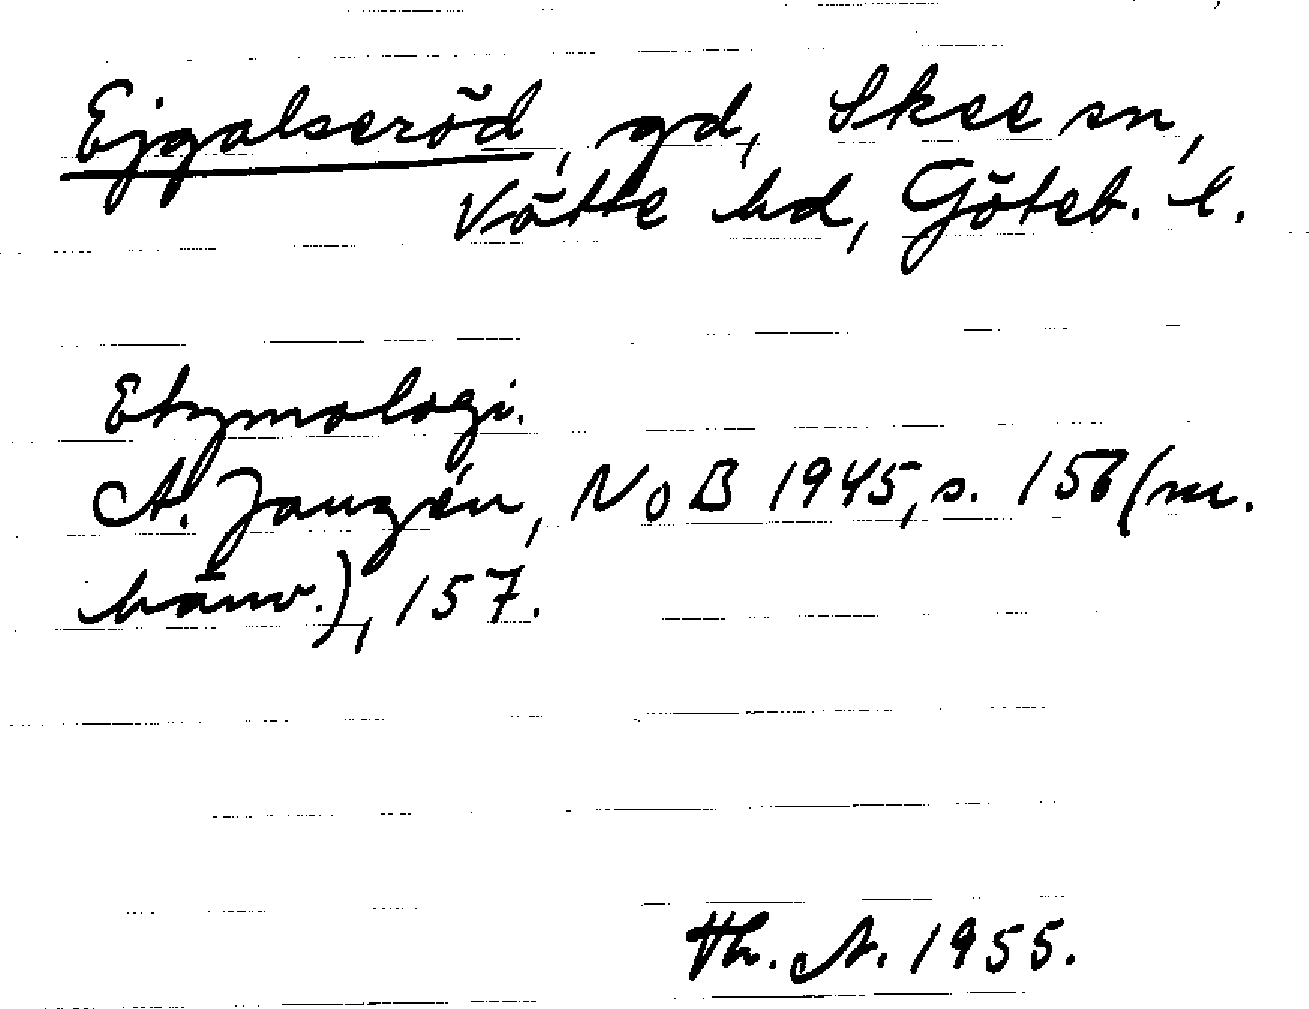 Ejgalseröd, gd, Skee sn,
Vätte hd, Göteb. l.
Etymologi.
A. Janzén, NoB 1945, s. 156 (m.
hänv.), 157.
Th. A. 1955.